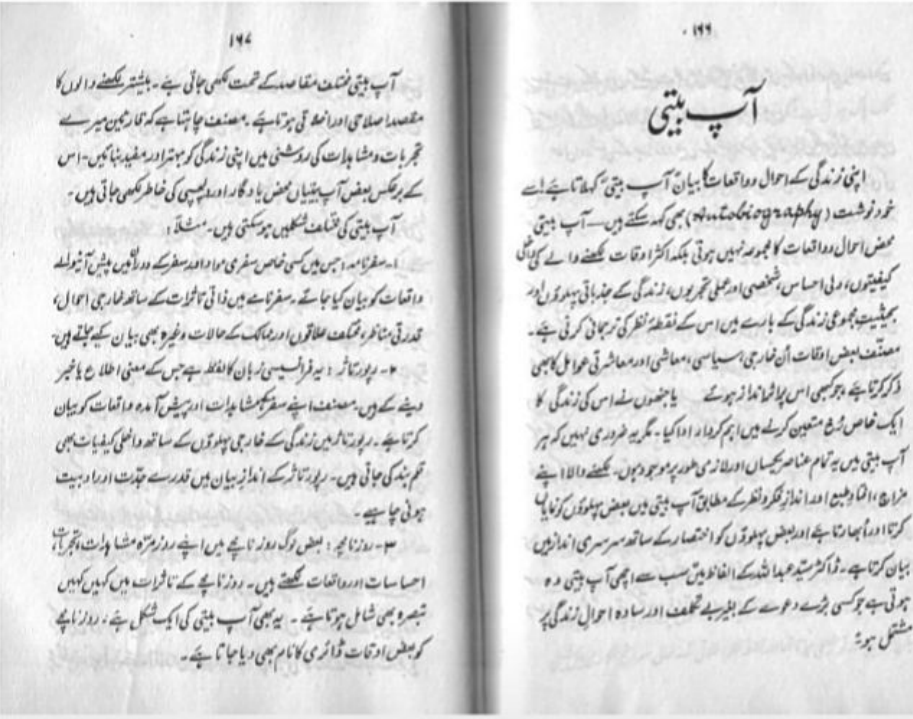 ۱۶۶
آپ بیتی
اپنی زندگی کے احوال و واقعات کا بیان "آپ بیتی" کہلاتا ہے اسے
خود نوشت (Autobiography) بھی کہہ سکتے ہیں — آپ بیتی
محض احوال و واقعات کا مجموعہ نہیں ہوتی بلکہ اکثر اوقات لکھنے والے کی داخلی
کیفیتوں، دلی احساس، شخصی اور عملی تجربوں، زندگی کے جذباتی پہلوؤں اور
بحیثیت مجموعی زندگی کے بارے میں اس کے نقطۂ نظر کی ترجمانی کرتی ہے۔
مصنف بعض اوقات ان خارجی، سیاسی، معاشی اور معاشرتی عوامل کا بھی
ذکر کرتا ہے، جو کبھی اس پر اثر انداز ہوئے یا جنھوں نے اس کی زندگی کا
ایک خاص رُخ متعین کرنے میں اہم کردار ادا کیا۔ مگر یہ ضروری نہیں کہ ہر
آپ بیتی میں یہ تمام عناصر یکساں اور لازمی طور پر موجود ہوں۔ لکھنے والا اپنے
مزاج، افتادِ طبع اور اندازِ فکر و نظر کے مطابق آپ بیتی میں بعض پہلوؤں کو نمایاں
کرتا اور اُبھارتا ہے اور بعض پہلوؤں کو اختصار کے ساتھ سرسری انداز میں
بیان کرتا ہے۔ ڈاکٹر سید عبداللہ کے الفاظ میں سب سے اچھی آپ بیتی وہ
ہوتی ہے جو کسی بڑے دعوے کے بغیر بے تکلف اور سادہ احوالِ زندگی پر
مشتمل ہو۔"
۱۶۷
آپ بیتی مختلف مقاصد کے تحت لکھی جاتی ہے۔ بیشتر لکھنے والوں کا
مقصد اصلاحی اور اخلاقی ہوتا ہے۔ مصنف چاہتا ہے کہ قارئین میرے
تجربات و مشاہدات کی روشنی میں اپنی زندگی کو بہتر اور مفید بنائیں۔ اس
کے برعکس بعض آپ بیتیاں محض یادگار اور دلچسپی کی خاطر لکھی جاتی ہیں۔
آپ بیتی کی مختلف شکلیں ہو سکتی ہیں۔ مثلاً:
۱۔ سفرنامہ: جس میں کسی خاص سفری مواد اور سفر کے دوران میں پیش آنیوالے
واقعات کو بیان کیا جائے۔ سفرنامے میں ذاتی تاثرات کے ساتھ خارجی احوال،
قدرتی مناظر، مختلف علاقوں اور ممالک کے حالات وغیرہ بھی بیان کیے جاتے ہیں۔
۲۔ رپورتاژ: یہ فرانسیسی زبان کا لفظ ہے جس کے معنی اطلاع یا خبر
دینے کے ہیں۔ مصنف اپنے سفر کا مشاہدات اور پیش آمدہ واقعات کو بیان
کرتا ہے۔ رپورتاژ میں زندگی کے خارجی پہلوؤں کے ساتھ داخلی کیفیات بھی
قلم بند کی جاتی ہیں۔ رپورتاژ کے اندازِ بیان میں قدرے جدّت اور ادبیت
ہونی چاہیے۔
۳۔ روزنامچہ: بعض لوگ روزنامچے میں اپنے روزمرہ مشاہدات، تجربات،
احساسات اور واقعات لکھتے ہیں۔ روزنامچے کے تاثرات میں کہیں کہیں
تبصرہ بھی شامل ہوتا ہے۔ یہ بھی آپ بیتی کی ایک شکل ہے۔ روزنامچے
کو بعض اوقات ڈائری کا نام بھی دیا جاتا ہے۔